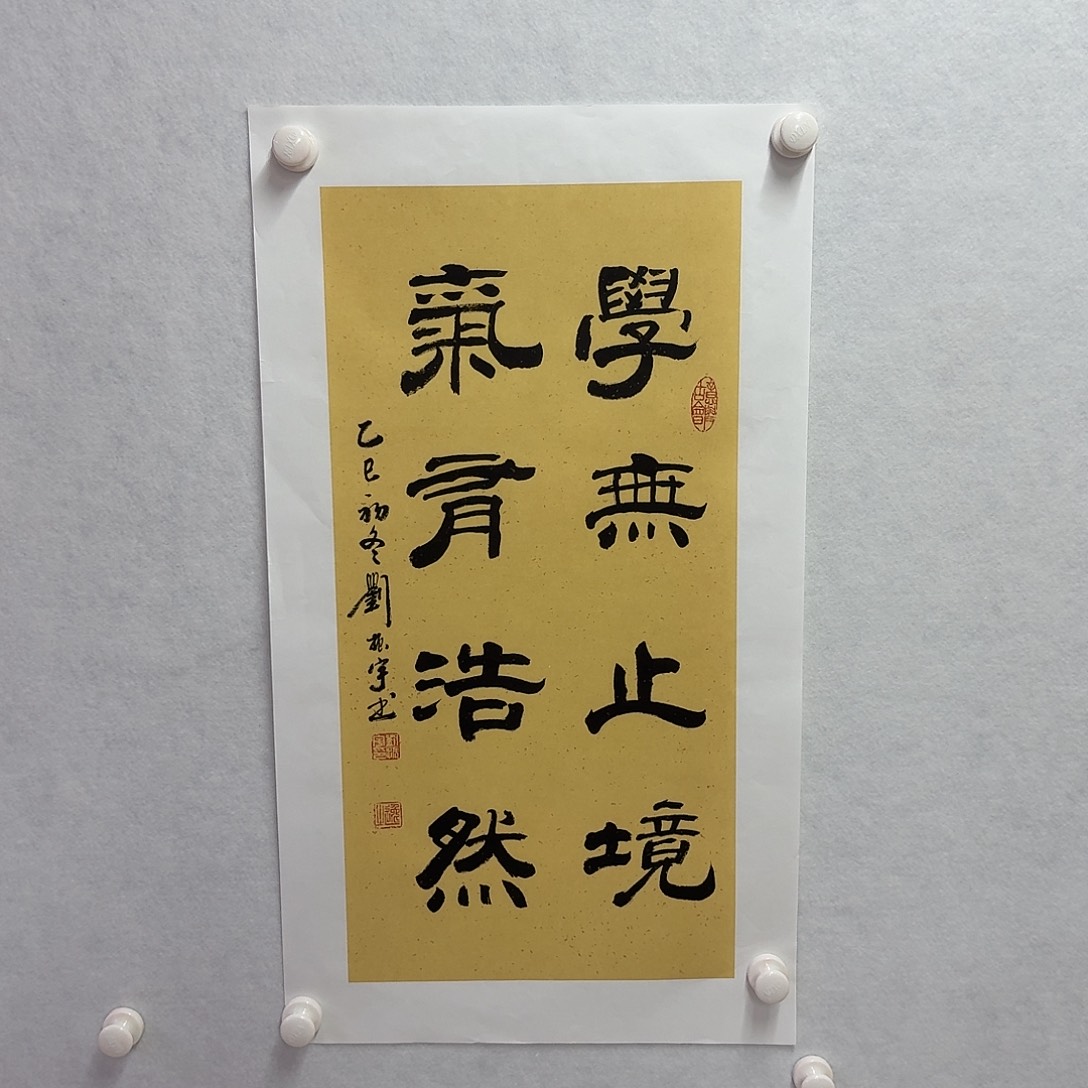 學無止境
氣有浩然
乙巳初冬劉振宇书